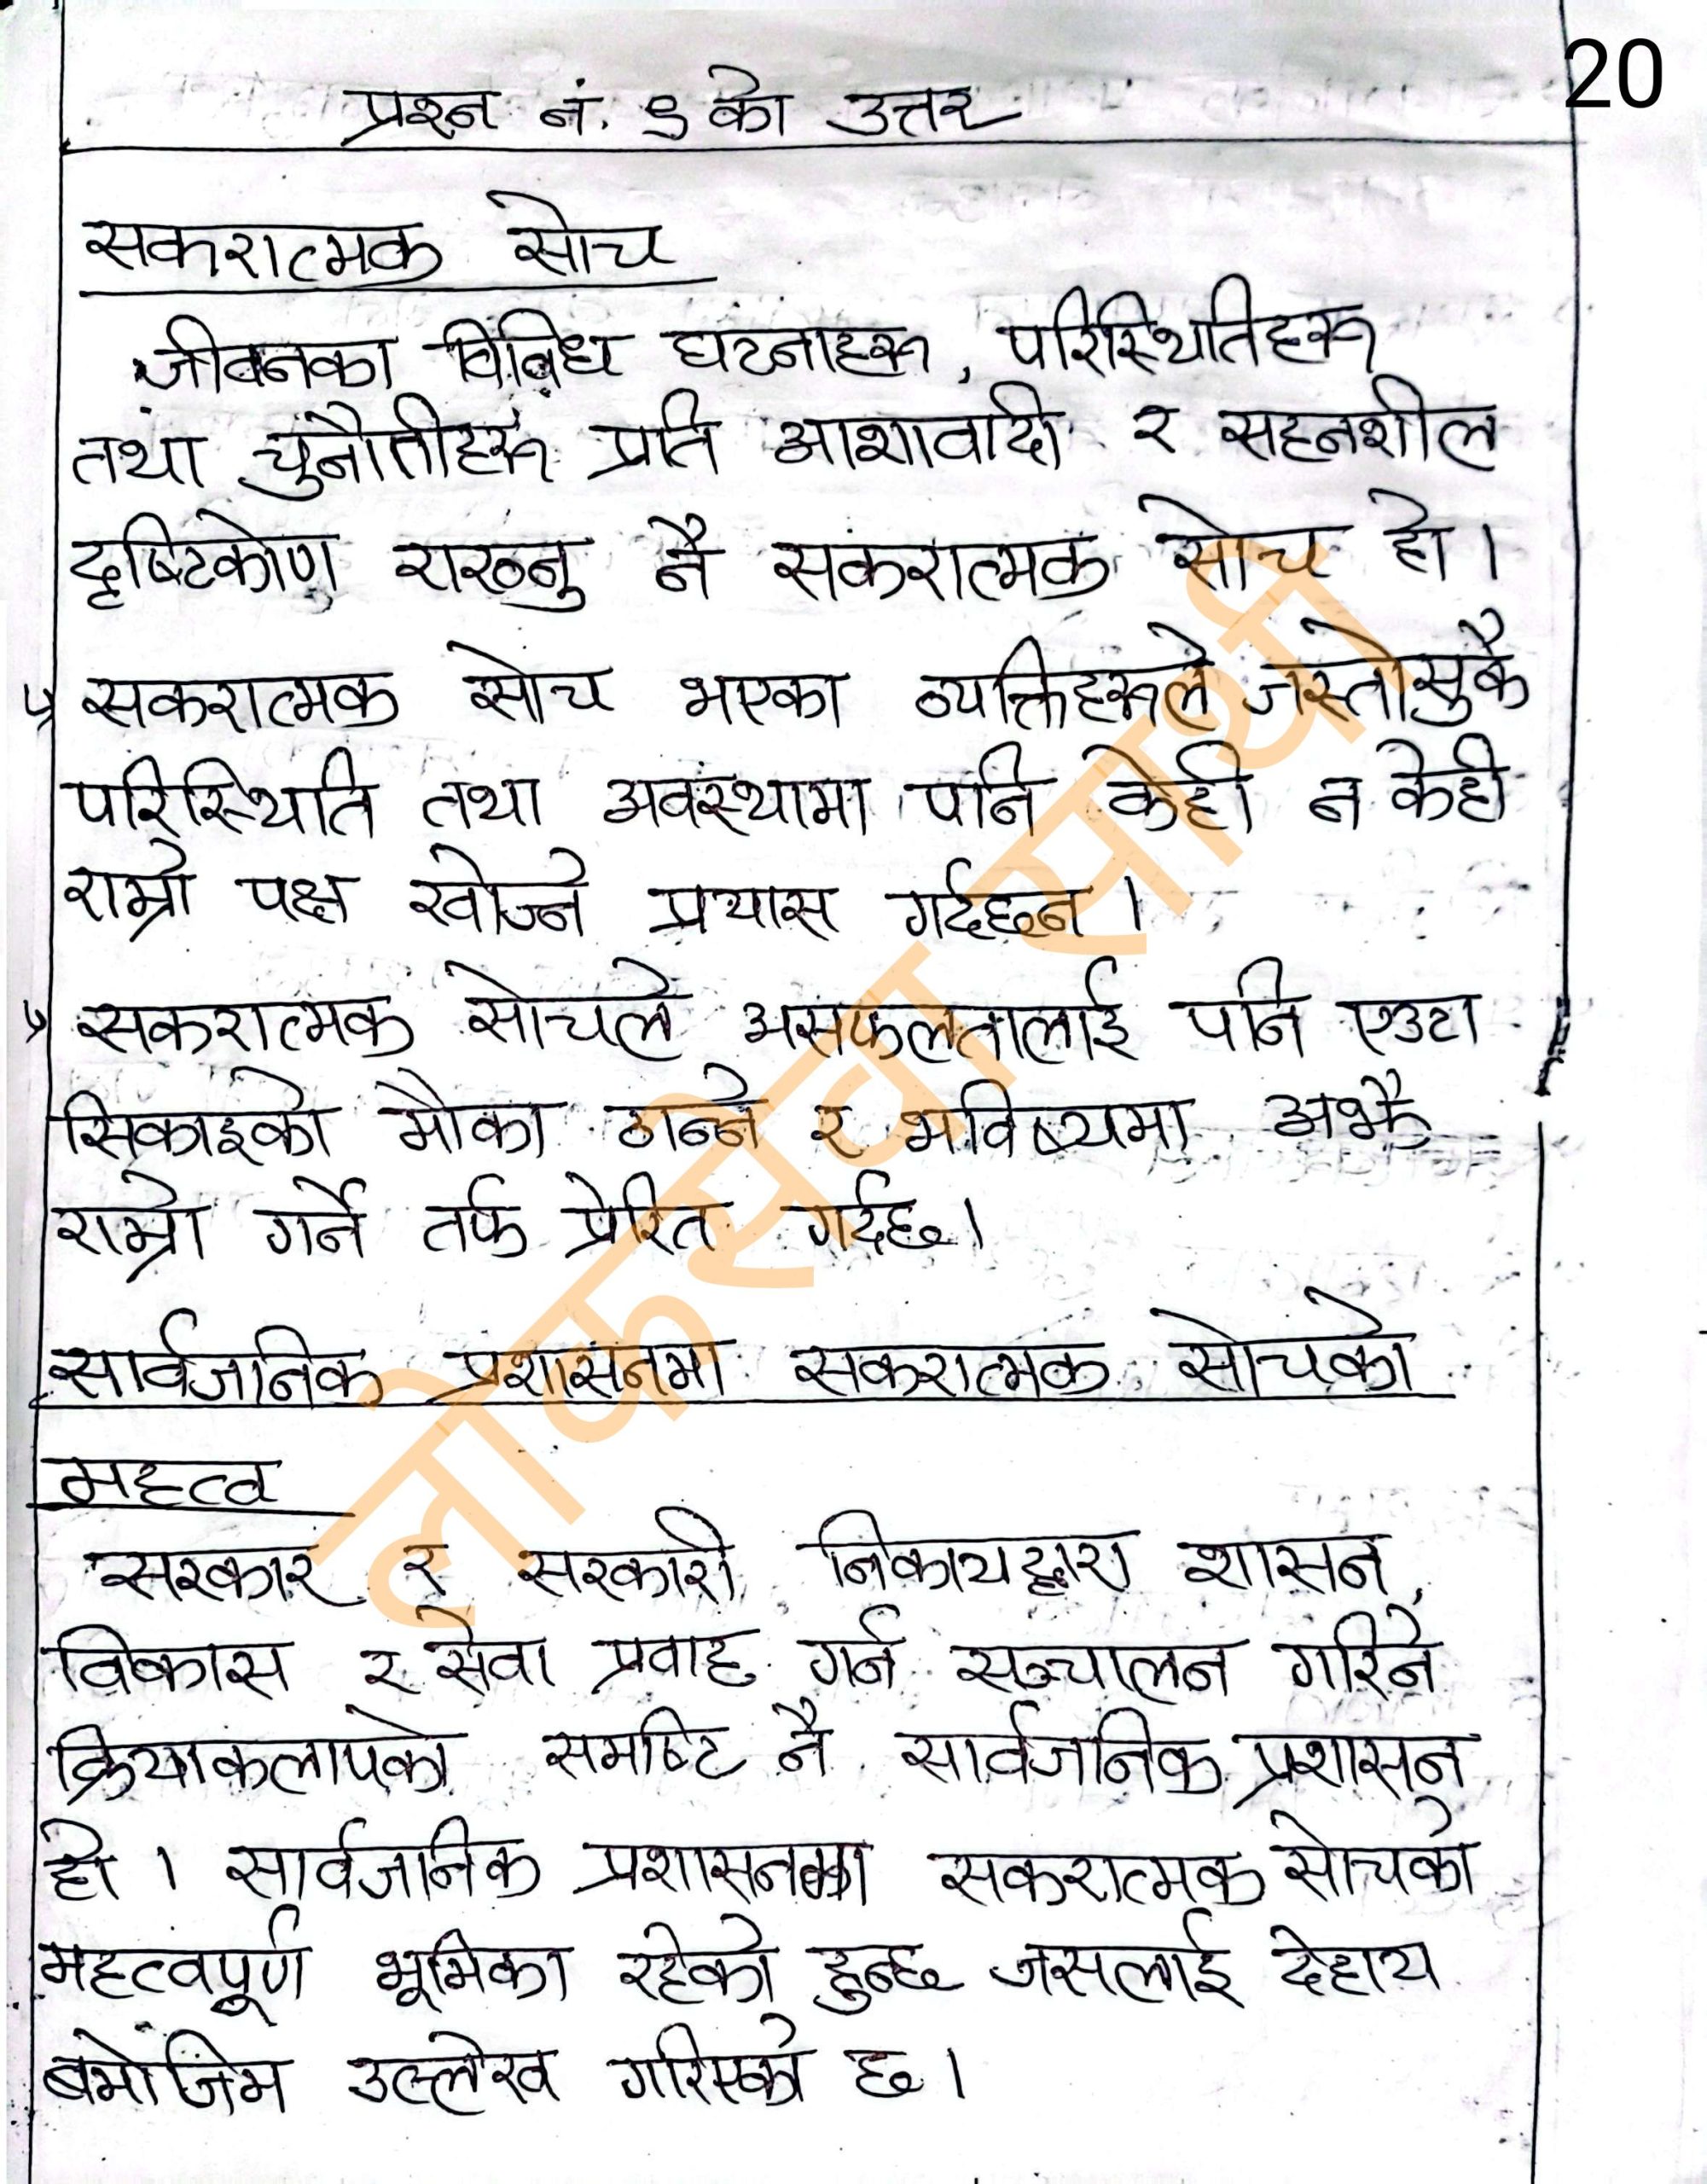 20
प्रश्न नं. ९ को उत्तर
सकरात्मक सोच
जीवनका विविध घटनाहरू, परिस्थितिहरू
तथा चुनौतीहरू प्रति आशावादी र सहनशील
दृष्टिकोण राख्नु नै सकरात्मक सोच हो ।
सकरात्मक सोच भएका व्यक्तिहरूले जस्तोसुकै
परिस्थिति तथा अवस्थामा पनि केही न केही
राम्रो पक्ष खोज्ने प्रयास गर्दछन ।
सकरात्मक सोचले असफलतालाई पनि एउटा
सिकाइको मौका ठान्ने र भविष्यमा अझै
राम्रो गर्ने तर्फ प्रेरित गर्दछ ।
सार्वजनिक प्रशासनमा सकरात्मक सोचको
महत्व
सरकार र सरकारी निकायद्वारा शासन,
विकास र सेवा प्रवाह गर्न सञ्चालन गरिने
क्रियाकलापको समष्टि नै सार्वजनिक प्रशासन
हो । सार्वजनिक प्रशासनमा सकरात्मक सोचको
महत्वपूर्ण भूमिका रहेको हुन्छ जसलाई देहाय
बमोजिम उल्लेख गरिएको छ ।
लोकसेवा साथी